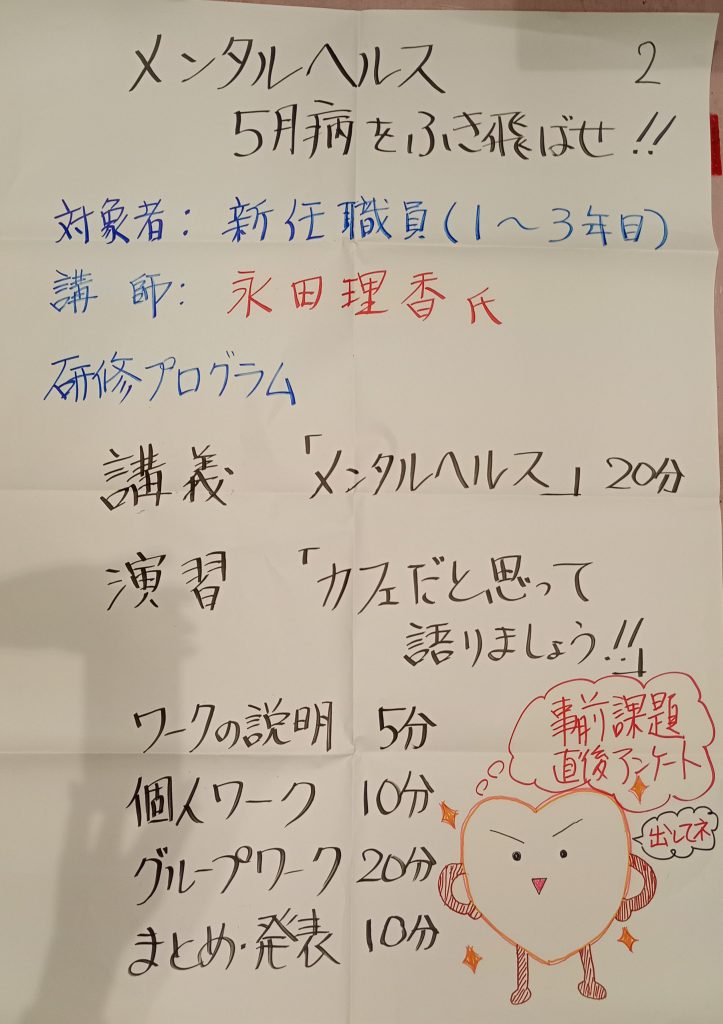 メンタルヘルス 2
5月病をふき飛ばせ!!
対象者: 新任職員(1〜3年目)
講 師: 永田理香氏
研修プログラム
講義 「メンタルヘルス」 20分
演習 「カフェだと思って
語りましょう!!」
ワークの説明 5分
個人ワーク 10分
グループワーク 20分
まとめ・発表 10分
事前課題
直後アンケート
出してネ